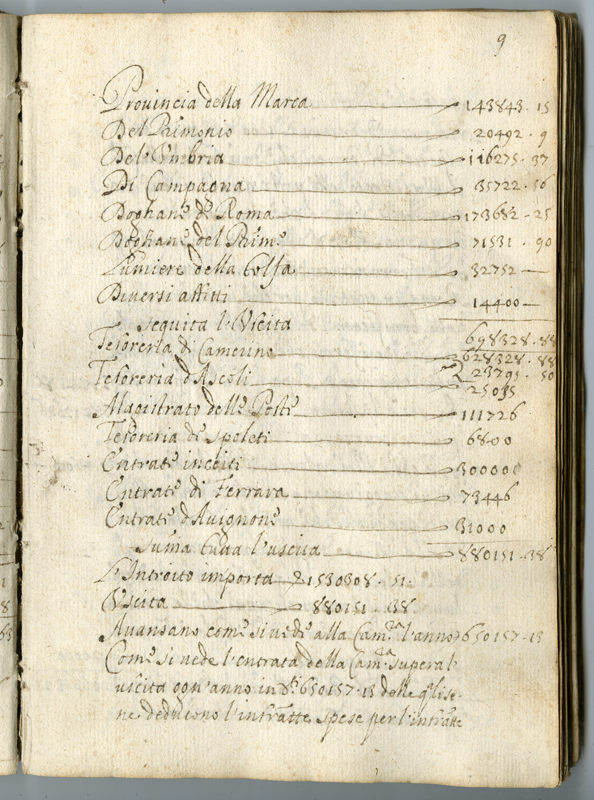 9
Provincia della Marca 143843 . 15
Del Primonio 20492 . 9
Del Vmbria 116275 . 37
Di Campagna 35722 . 56
Doghane de Roma 173682 . 25
Doghane del Prim.e 71531 . 90
Lumiere della Tolfa 32752 —
Diversi affitti 14400 —
Seguita l'Vscita 698328 . 88
Tesoreria di Camerino 628328 . 88
Tesoreria d'Ascoli 23795 . 50
25035
Magistrato delle Poste 111726
Tesoreria de Spoleti 6800
Entrate incerti 300000
Entrate di Ferrara 73446
Entrate d'Avignone 31000
Suma tutta l'uscita 880151 . 38
L'Introito importa 1530308 . 51
Vscita 880151 . 38
Auanzano come si vede alla Cam.ra l'anno 650157 . 13
Come si vede l'entrata della Cam.ra supera l'
uscita ogn'anno in 650157 . 13 delle q.li se
ne deducono l'infratte spese per l'infratte